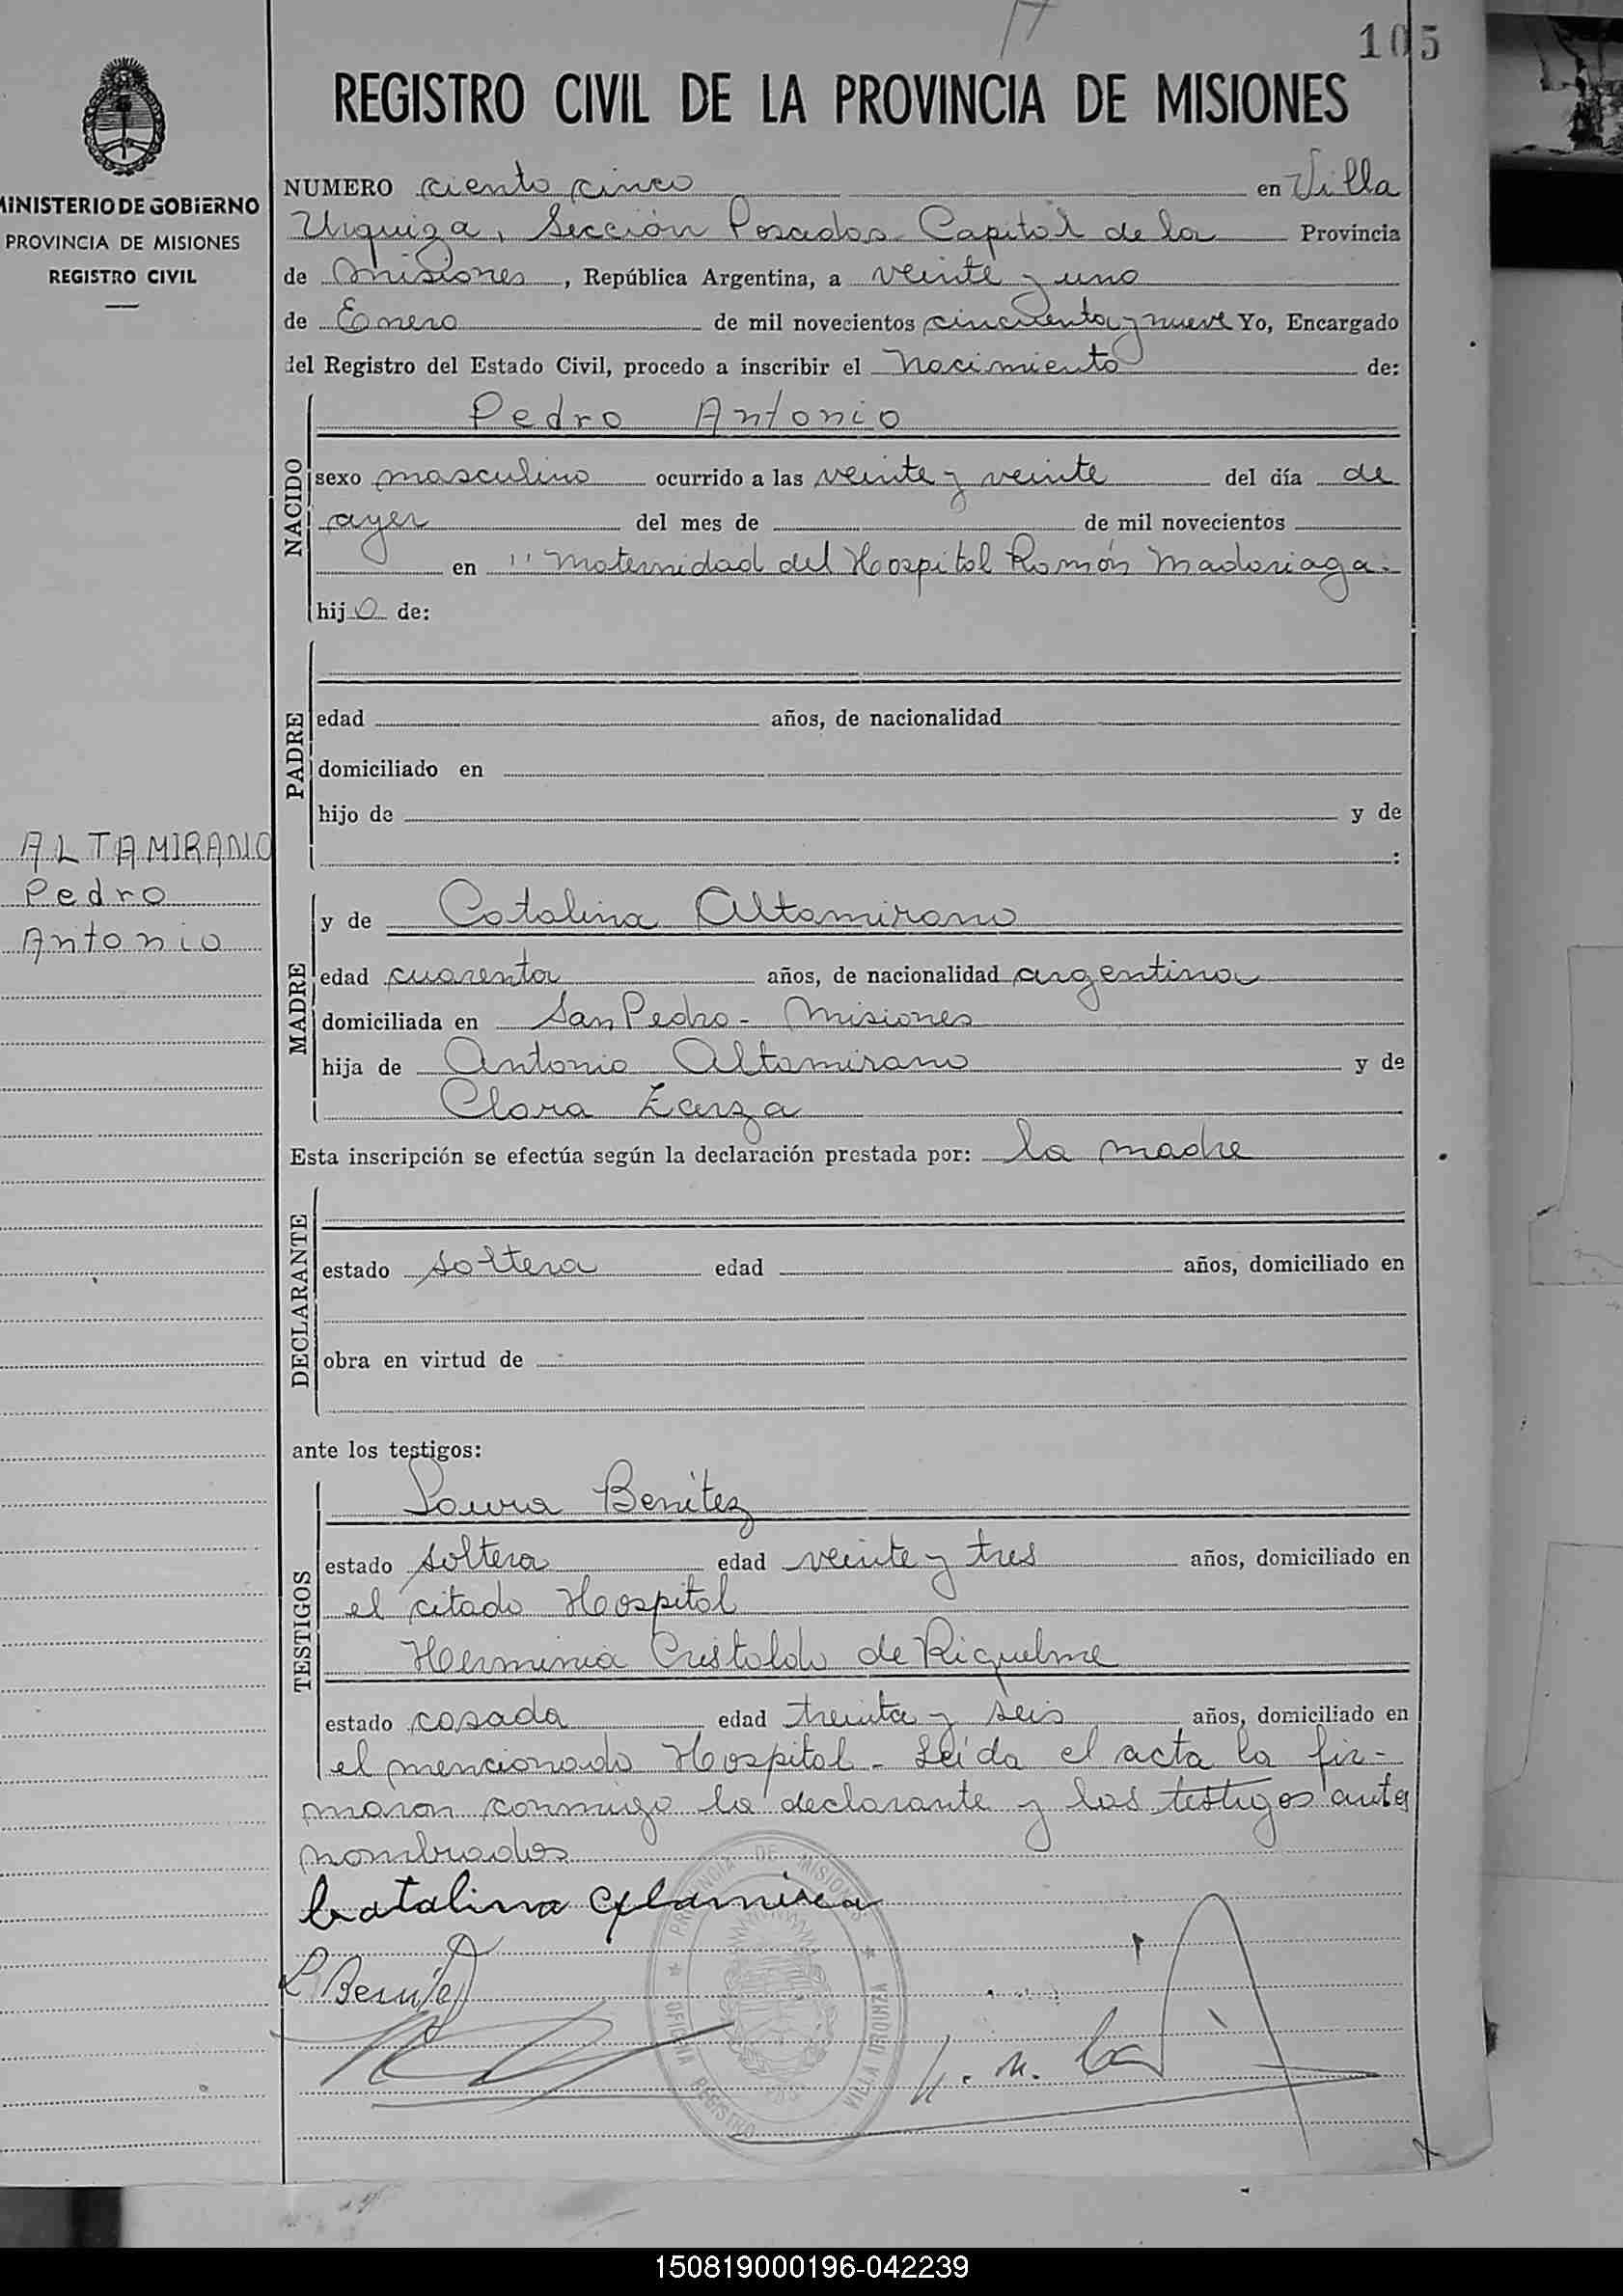 17
105
REGISTRO CIVIL DE LA PROVINCIA DE MISIONES
MINISTERIO DE GOBIERNO
PROVINCIA DE MISIONES
REGISTRO CIVIL
NUMERO ciento cinco en Villa
Urquiza, Sección Posadas Capital de la Provincia
de Misiones, República Argentina, a veinte y uno
de Enero de mil novecientos cincuenta y nueve Yo, Encargado
del Registro del Estado Civil, procedo a inscribir el Nacimiento de:
NACIDO
Pedro Antonio
sexo masculino ocurrido a las veinte y veinte del día de
ayer del mes de de mil novecientos
en "Maternidad del Hospital Ramón Madariaga.
hijo de:
PADRE
edad años, de nacionalidad
domiciliado en
hijo de y de
:
ALTAMIRANO
Pedro
Antonio
MADRE
y de Catalina Altamirano
edad cuarenta años, de nacionalidad argentina
domiciliada en San Pedro - Misiones
hija de Antonio Altamirano y de
Clara Zarza
Esta inscripción se efectúa según la declaración prestada por: la madre
DECLARANTE
estado soltera edad años, domiciliado en
obra en virtud de
ante los testigos:
TESTIGOS
Laura Benítez
estado soltera edad veinte y tres años, domiciliado en
el citado Hospital
Herminia Cristaldo de Riquelme
estado casada edad treinta y seis años, domiciliado en
el mencionado Hospital - Leída el acta la fir-
maron conmigo la declarante y los testigos antes
nombrados
Catalina
L Benitez
PROVINCIA DE MISIONES
OFICINA REGISTRO VILLA URQUIZA
150819000196-042239